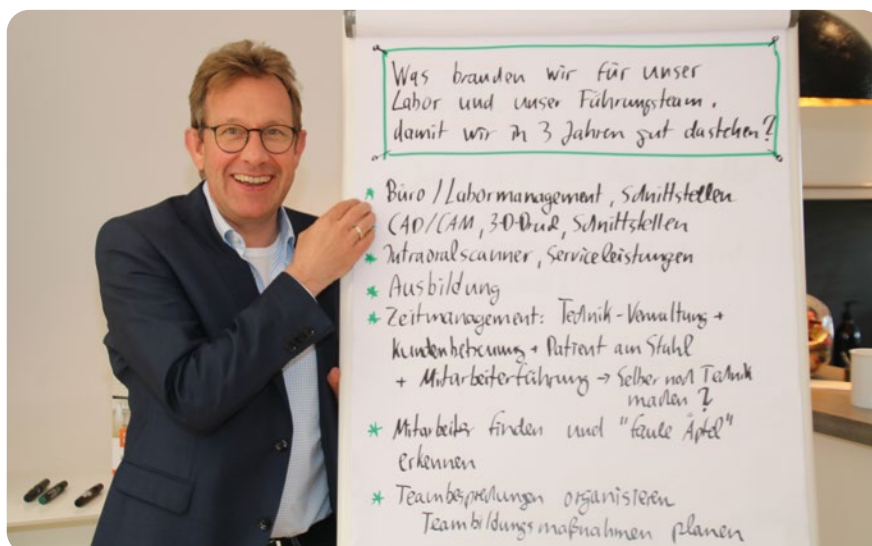 Was brauchen wir für unser
Labor und unser Führungsteam,
damit wir in 3 Jahren gut dastehen?
* Büro/Labormanagement, Schnittstellen
CAD/CAM, 3-D-Druck, Schnittstellen
* Intraoralscanner, Serviceleistungen
* Ausbildung
* Zeitmanagement: Technik-Verwaltung +
Kundenbetreuung + Patient am Stuhl
+ Mitarbeiterführung → Selber noch Technik
machen?
* Mitarbeiter finden und "faule Äpfel"
erkennen
* Teambesprechungen organisieren
Teambildungsmaßnahmen planen